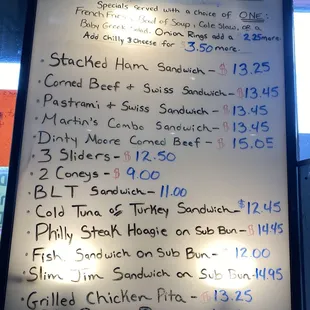 Specials served with a choice of ONE:
French Fries, Bowl of Soup, Cole Slaw, or a
Baby Greek Salad. Onion Rings add a 2.25 more.
Add chilly & cheese for 3.50 more
• Stacked Ham Sandwich - $13.25
• Corned Beef & Swiss Sandwich - $13.45
• Pastrami & Swiss Sandwich - $13.45
• Martin's Combo Sandwich - $13.45
• Dinty Moore Corned Beef - $15.05
• 3 Sliders - $12.50
• 2 Coneys - $9.00
• BLT Sandwich - 11.00
• Cold Tuna or Turkey Sandwich - $12.45
• Philly Steak Hoagie on Sub Bun - $14.45
• Fish Sandwich on Sub Bun - 12.00
• Slim Jim Sandwich on Sub Bun - 14.95
• Grilled Chicken Pita - $13.25